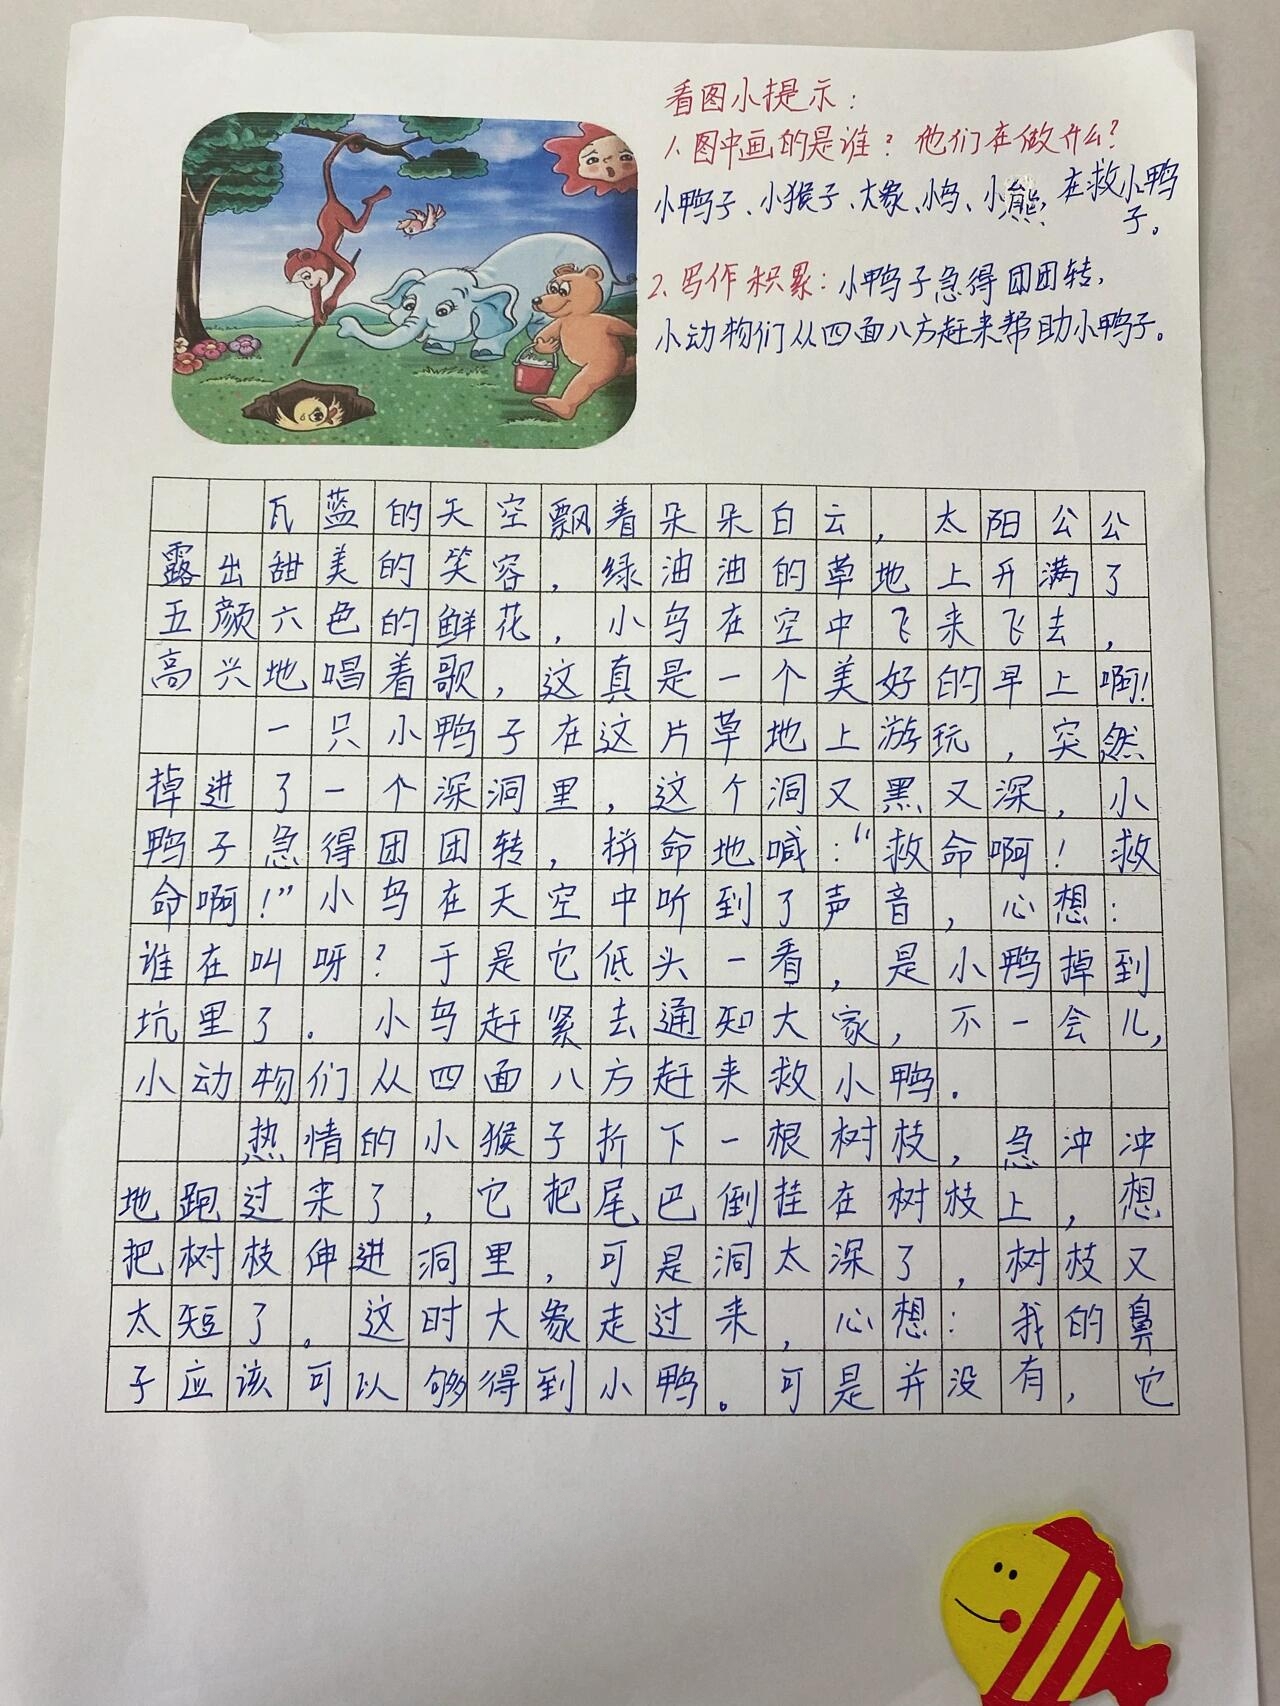 看图小提示：
1、图中画的是谁？他们在做什么？
小鸭子、小猴子、大象、小鸟、小熊，在救小鸭
子。
2、写作积累：小鸭子急得团团转，
小动物们从四面八方赶来帮助小鸭子。
瓦蓝的天空飘着朵朵白云，太阳公公
露出甜美的笑容，绿油油的草地上开满了
五颜六色的鲜花，小鸟在空中飞来飞去，
高兴地唱着歌，这真是一个美好的早上啊！
一只小鸭子在这片草地上游玩，突然
掉进了一个深洞里，这个洞又黑又深，小
鸭子急得团团转，拼命地喊：“救命啊！救
命啊！”小鸟在天空中听到了声音，心想：
谁在叫呀？于是它低头一看，是小鸭掉到
坑里了。小鸟赶紧去通知大家，不一会儿，
小动物们从四面八方赶来救小鸭．
热情的小猴子折下一根树枝，急冲冲
地跑过来了，它把尾巴倒挂在树枝上，想
把树枝伸进洞里，可是洞太深了，树枝又
太短了。这时大象走过来，心想：我的鼻
子应该可以够得到小鸭。可是并没有，它